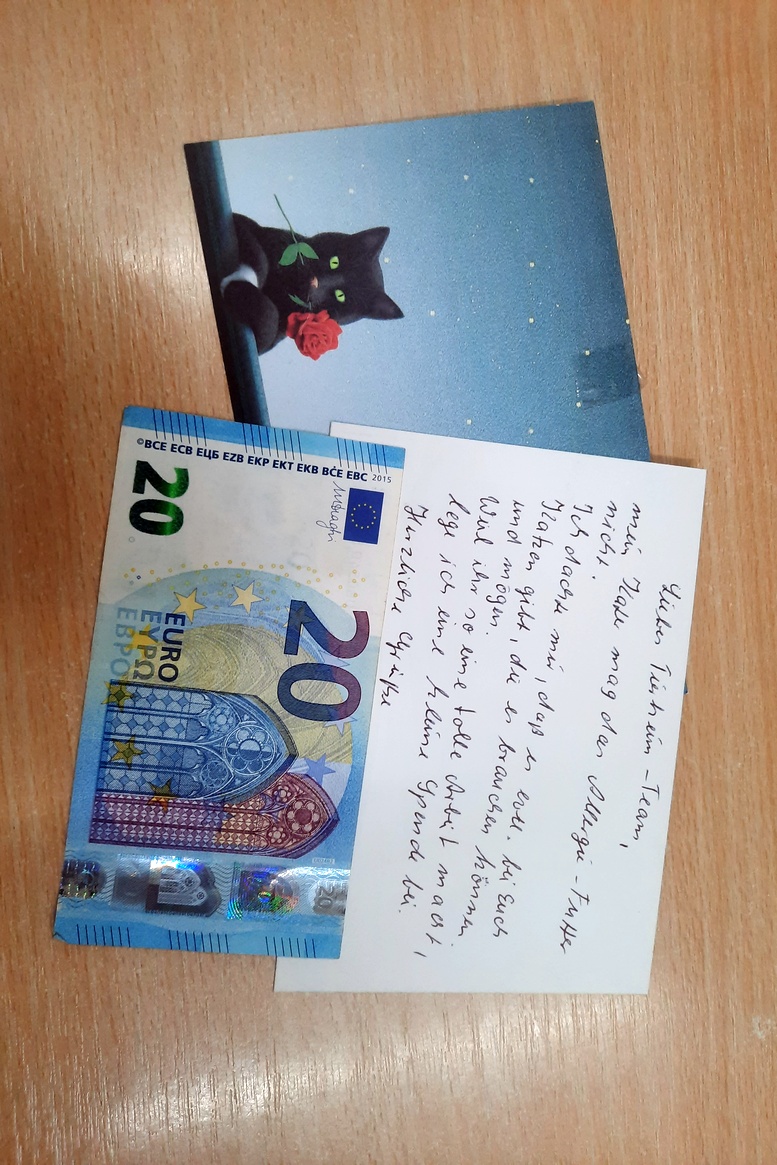 Liebes Tierheim-Team,
mein Kater mag das Allergie-Futter
nicht.
Ich dachte mir, daß es evel. bei Euch
Katzen gibt, die es brauchen können
und mögen.
Weil ihr so eine tolle Arbeit macht,
lege ich eine kleine Spende bei.
Herzliche Grüße
©BCE ECB ЕЦБ EZB EKP EKT EKB BĊE EBC 2015
20
20
EURO
ΕΥΡΩ
ЕВРО
20